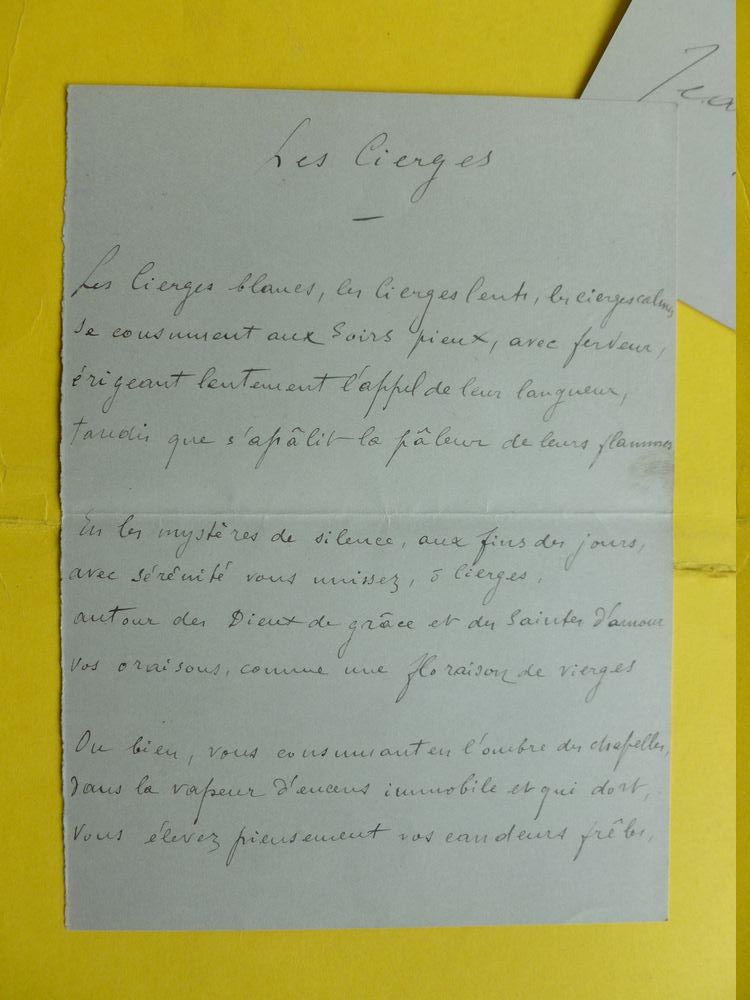 Les Cierges
Les Cierges blancs, les Cierges lents, les cierges calmes
se consument aux Soirs pieux, avec ferveur,
érigeant lentement l'appel de leur langueur,
tandis que s'apâlit la pâleur de leurs flammes
En les mystères de silence, aux fins des jours,
avec sérénité vous unissez, ô Cierges,
autour des Dieux de grâce et des Saintes d'amour
vos oraisons, comme une floraison de vierges
Ou bien, vous consumant en l'ombre des chapelles,
dans la vapeur d'encens immobile et qui dort,
vous élevez pieusement vos candeurs frêles,